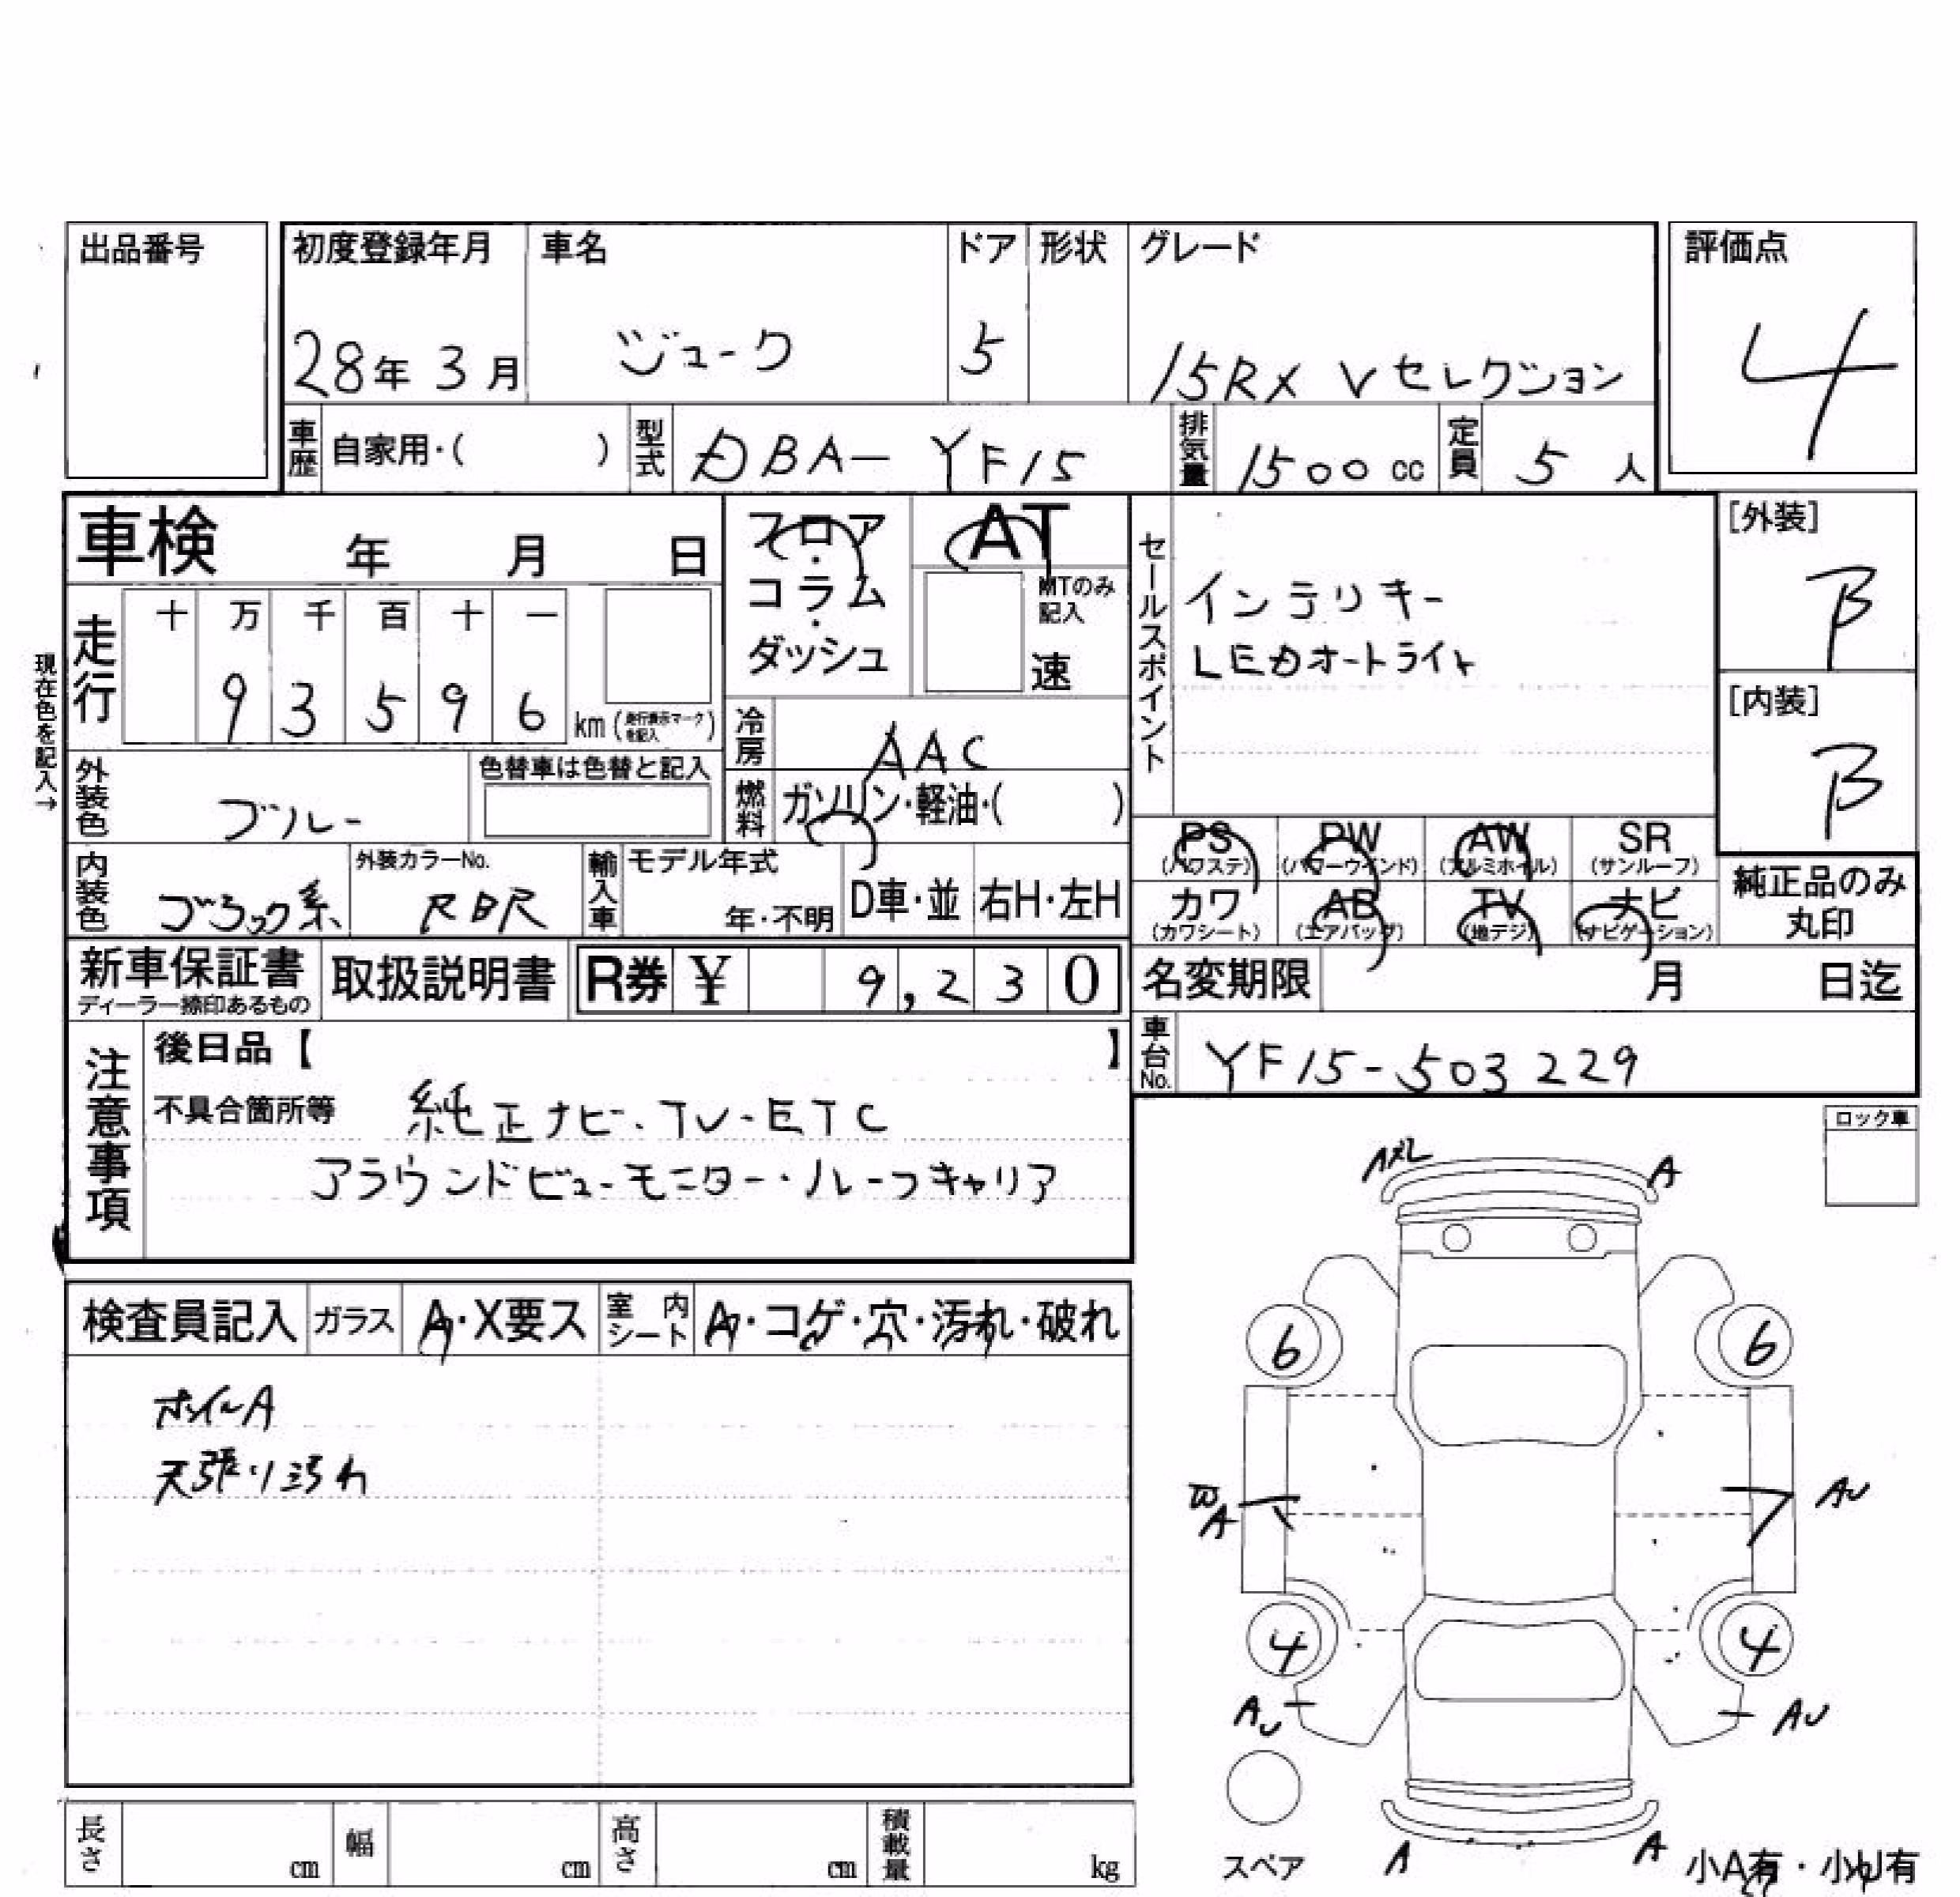 出品番号
初度登録年月 車名 ドア 形状 グレード 評価点
28年 3月 ジューク 5 15RX Vセレクション 4
車歴 自家用・( ) 型式 DBA-YF15 排気量 1500cc 定員 5人
車検 年 月 日
フロア・コラム・ダッシュ
AT
MTのみ記入
速
セールスポイント
インテリキー
LEDオートライト
[外装]
B
[内装]
B
現在色を記入→
走行 十 万 千 百 十 一
9 3 5 9 6 km (走行表示マークを記入)
冷房 AAC
外装色 ブルー 色替車は色替と記入
燃料 ガソリン・軽油・( )
PS (パワステ) PW (パワーウインド) AW (アルミホイル) SR (サンルーフ)
カワ (カワシート) AB (エアバッグ) TV (地デジ) ナビ (ナビゲーション)
純正品のみ丸印
内装色 ブラック系 外装カラーNo. RBR 輸入車 モデル年式 年・不明 D車・並 右H・左H
新車保証書 ディーラー捺印あるもの 取扱説明書 R券 ¥ 9,230
名変期限 月 日迄
車台No. YF15-503229
注意事項
後日品【 】
不具合箇所等 純正ナビ・TV・ETC
アラウンドビューモニター・ルーフキャリア
ロック車
検査員記入 ガラス A・X要ス 室内シート A・コゲ・穴・汚れ・破れ
ホイルA
天張り汚れ
A
6 6
A
AU
4 4
AU AU
スペア
A A
小A有・小U有
長さ cm 幅 cm 高さ cm 積載量 kg